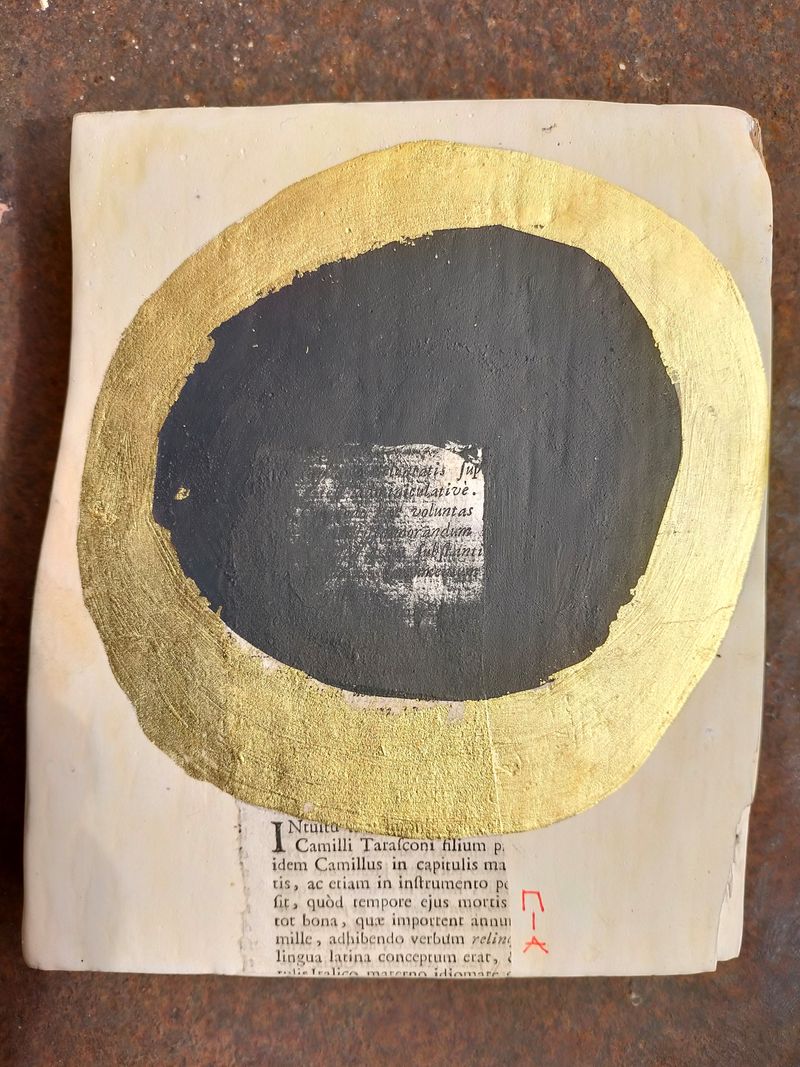 voluntatis ſup
adminiculativè.
voluntas
morandum
ſubſtanti
INtuitu
Camilli Taraſconi filium p
idem Camillus in capitulis ma
tis, ac etiam in inſtrumento pe
ſit, quòd tempore ejus mortis
tot bona, quæ importent annu
mille, adhibendo verbum relinq
lingua latina conceptum erat, &
Italico materno idiomate
ПIA